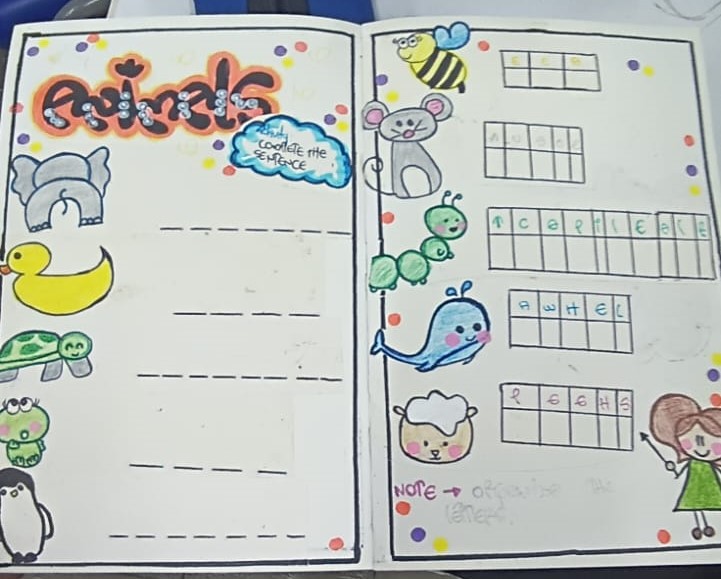 Animals
COMPLETE the
SENTENCE
E E B
A W H E L
P E E H S
NOTE → organize the
letters.